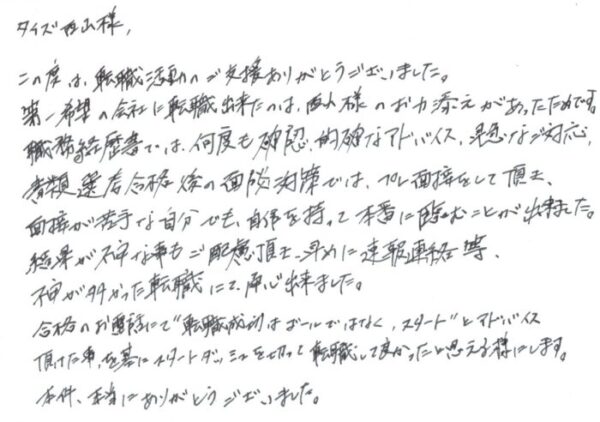 タイズ西山様,
この度は、転職活動のご支援ありがとうございました。
第一希望の会社に転職出来たのは、西山様のお力添えがあったためです。
職務経歴書では、何度も確認、的確なアドバイス、迅速なご対応,
書類選考合格後の面談対策では、プレ面接をして頂き、
面接が苦手な自分でも、自信を持って本番に臨むことが出来ました。
結果が不安な事もご配慮頂き、早めに速報連絡等、
不安が多かった転職にて安心出来ました。
合格のお電話にて"転職成功はゴールではなく、スタート"とアドバイス
頂けた事,を基にスタートダッシュを切って転職して良かったと思える様にします。
本件、本当にありがとうございました。